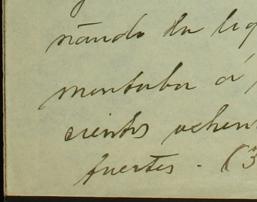 nando la lig
montaba a
cientos ochen
fuertes. (3